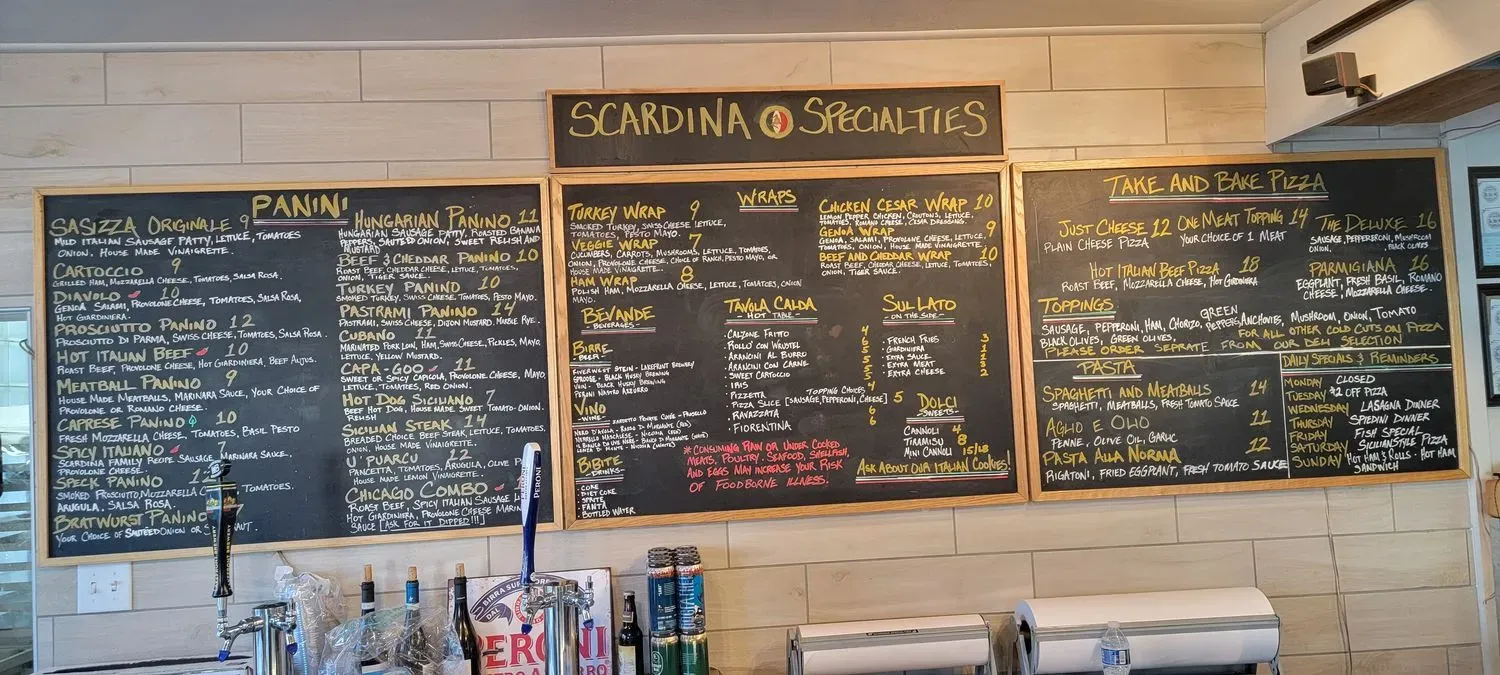 SCARDINA SPECIALTIES
PANINI
SASIZZA ORIGINALE 9
MILD ITALIAN SAUSAGE PATTY, LETTUCE, TOMATOES
ONION, HOUSE MADE VINAIGRETTE.
CARTOCCIO 9
GRILLED HAM, MOZZARELLA CHEESE, TOMATOES, SALSA ROSA.
DIAVOLO 10
GENOA SALAMI, PROVOLONE CHEESE, TOMATOES, SALSA ROSA,
HOT GIARDINERA.
PROSCIUTTO PANINO 12
PROSCIUTTO DI PARMA, SWISS CHEESE, TOMATOES, SALSA ROSA.
HOT ITALIAN BEEF 10
ROAST BEEF, PROVOLONE CHEESE, HOT GIARDINIERA, BEEF AUJUS.
MEATBALL PANINO 9
HOUSE MADE MEATBALLS, MARINARA SAUCE, YOUR CHOICE OF
PROVOLONE OR ROMANO CHEESE.
CAPRESE PANINO 10
FRESH MOZZARELLA CHEESE, TOMATOES, BASIL PESTO
SPICY ITALIANO 7
SCARDINA FAMILY RECIPE SAUSAGE, MARINARA SAUCE,
PROVOLONE CHEESE.
SPECK PANINO
SMOKED PROSCIUTTO, MOZZARELLA TOMATOES.
ARUGULA, SALSA ROSA.
BRATWURST PANINO
YOUR CHOICE OF SAUTEED ONION OR
HUNGARIAN PANINO 11
HUNGARIAN SAUSAGE PATTY, ROASTED BANANA
PEPPERS, SAUTEED ONION, SWEET RELISH AND
MUSTARD
BEEF & CHEDDAR PANINO 10
ROAST BEEF, CHEDDAR CHEESE, LETTUCE, TOMATOES,
ONION, TIGER SAUCE.
TURKEY PANINO 10
SMOKED TURKEY, SWISS CHEESE, TOMATOES, PESTO MAYO.
PASTRAMI PANINO 14
PASTRAMI, SWISS CHEESE, DIJON MUSTARD, MARBLE RYE.
CUBANO 11
MARINATED PORK LOIN, HAM, SWISS CHEESE, PICKLES, MAYO,
LETTUCE, YELLOW MUSTARD.
CAPA-GOO 11
SWEET OR SPICY CAPICOLA, PROVOLONE CHEESE, MAYO,
LETTUCE, TOMATOES, RED ONION.
HOT DOG SICILIANO 7
BEEF HOT DOG, HOUSE MADE SWEET TOMATO-ONION
RELISH
SICILIAN STEAK 14
BREADED CHOICE BEEF STEAK, LETTUCE, TOMATOES,
HOUSE MADE VINAIGRETTE.
U'PUARCU 12
PANCETTA, TOMATOES, ARUGULA, OLIVE
HOUSE MADE LEMON VINAIGRETTE.
CHICAGO COMBO
ROAST BEEF, SPICY ITALIAN SAUSAGE
HOT GIARDINIERA, PROVOLONE CHEESE MARINARA
SAUCE [ASK FOR IT DIPPED!!!]
WRAPS
TURKEY WRAP 9
SMOKED TURKEY, SWISS CHEESE, LETTUCE,
TOMATOES, PESTO MAYO.
VEGGIE WRAP 7
CUCUMBERS, CARROTS, MUSHROOMS, LETTUCE, TOMATOES,
ONION, PROVOLONE CHEESE, CHOICE OF RANCH, PESTO MAYO, OR
HOUSE MADE VINAIGRETTE.
HAM WRAP 8
POLISH HAM, MOZZARELLA CHEESE, LETTUCE, TOMATOES, ONION
MAYO.
CHICKEN CESAR WRAP 10
LEMON PEPPER CHICKEN, CROUTONS, LETTUCE,
TOMATOES, ROMANO CHEESE, CESAR DRESSING.
GENOA WRAP 9
GENOA, SALAMI, PROVOLONE CHEESE, LETTUCE,
TOMATOES, ONION, HOUSE MADE VINAIGRETTE.
BEEF AND CHEDDAR WRAP 10
ROAST BEEF, CHEDDAR CHEESE, LETTUCE, TOMATOES,
ONION, TIGER SAUCE.
BEVANDE
-BEVERAGES-
BIRRE
-BEER-
RIVERWEST STEIN - LAKEFRONT BREWERY
SPROOSE - BLACK HUSKY BREWING
BLACK HUSKY BREWING
PERONI NASTRO AZZURRO
VINO
-WINE-
BIBITE
-DRINKS-
- COKE
- DIET COKE
- SPRITE
- FANTA
- BOTTLED WATER
TAVOLA CALDA
- HOT TABLE -
- CALZONE FRITTO 4
- ROLLO' CON WRUSTEL 6
- ARANCINI AL BURRO 5
- ARANCINI CON CARNE 5
- SWEET CARTOCCIO
- IRIS
- PIZZETTA
TOPPING CHOICES
- PIZZA SLICE [SAUSAGE, PEPPERONI, CHEESE] 5
- RAVAZZATA 6
- FIORENTINA 6
SUL LATO
- ON THE SIDE -
- FRENCH FRIES 3
- GIARDINERA
- EXTRA SAUCE
- EXTRA MEAT
- EXTRA CHEESE
DOLCI
-SWEETS-
CANNOLI 4
TIRAMISU 8
MINI CANNOLI 15/LB
ASK ABOUT OUR ITALIAN COOKIES!
* CONSUMING RAW OR UNDER COOKED
MEATS, POULTRY, SEAFOOD, SHELLFISH,
AND EGGS MAY INCREASE YOUR RISK
OF FOODBORNE ILLNESS.
TAKE AND BAKE PIZZA
JUST CHEESE 12
PLAIN CHEESE PIZZA
ONE MEAT TOPPING 14
YOUR CHOICE OF 1 MEAT
THE DELUXE 16
SAUSAGE, PEPPERONI, MUSHROOM
ONION, BLACK OLIVES
HOT ITALIAN BEEF PIZZA 18
ROAST BEEF, MOZZARELLA CHEESE, HOT GIARDINERA
PARMIGIANA 16
EGGPLANT, FRESH BASIL, ROMANO
CHEESE, MOZZARELLA CHEESE.
TOPPINGS
SAUSAGE, PEPPERONI, HAM, CHORIZO, GREEN PEPPERS, ANCHOVIES, MUSHROOM, ONION, TOMATO
BLACK OLIVES, GREEN OLIVES,
FOR ALL OTHER COLD CUTS ON PIZZA
PLEASE ORDER SEPRATE FROM OUR DELI SELECTION
PASTA
SPAGHETTI AND MEATBALLS 14
SPAGHETTI, MEATBALLS, FRESH TOMATO SAUCE
AGLIO E OLIO 11
PENNE, OLIVE OIL, GARLIC
PASTA ALLA NORMA 12
RIGATONI, FRIED EGGPLANT, FRESH TOMATO SAUCE
DAILY SPECIALS & REMINDERS
MONDAY CLOSED
TUESDAY $2 OFF PIZZA
WEDNESDAY LASAGNA DINNER
THURSDAY SPIEDINI DINNER
FRIDAY FISH SPECIAL
SATURDAY SICILIAN STYLE PIZZA
SUNDAY HOT HAM & ROLLS - HOT HAM
SANDWICH
PERONI
BIRRA SUP
DAL
PERONI